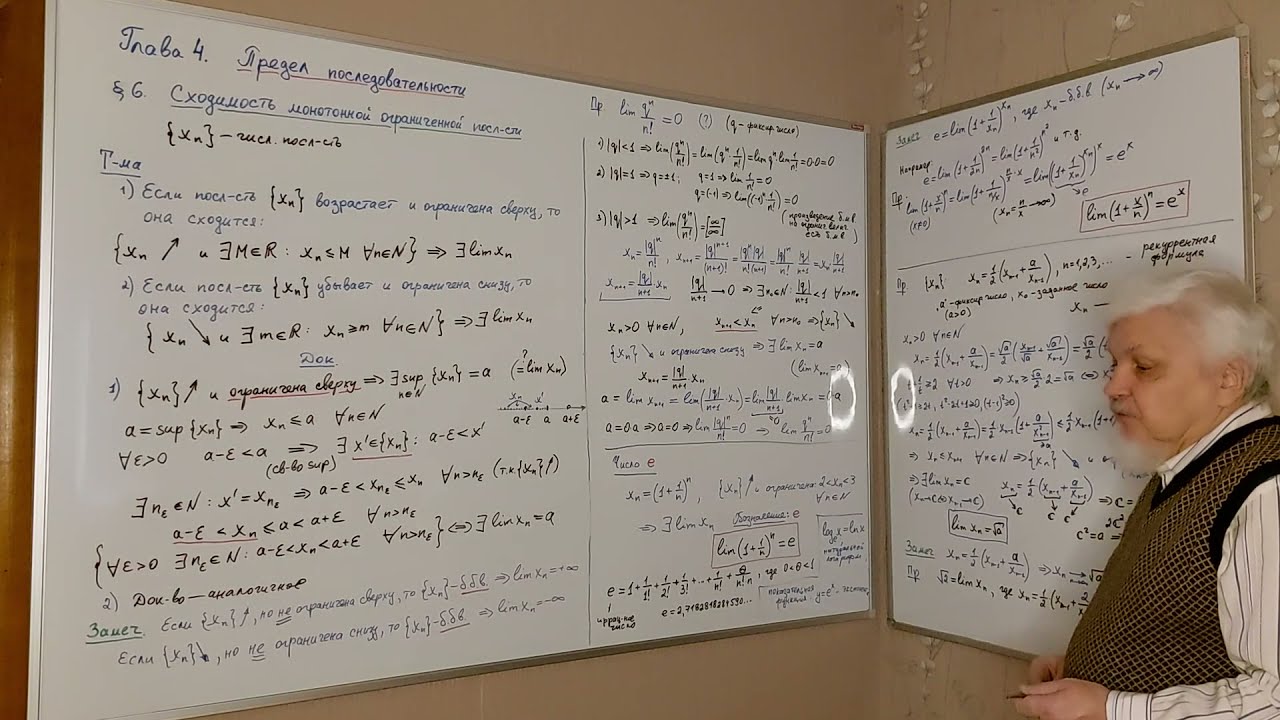 Глава 4. Предел последовательности
§ 6. Сходимость монотонной ограниченной посл-сти
{xₙ} – числ. посл-сть
Т-ма
1) Если посл-сть {xₙ} возрастает и ограничена сверху, то
она сходится:
{xₙ ↗ и ∃M∈R : xₙ ≤ M ∀n∈N} ⇒ ∃ lim xₙ
2) Если посл-сть {xₙ} убывает и ограничена снизу, то
она сходится:
{xₙ ↘ и ∃m∈R : xₙ ≥ m ∀n∈N} ⇒ ∃ lim xₙ
Док.
1) {xₙ}↗ и ограничена сверху ⇒ ∃ sup {xₙ} = a (≟ lim xₙ)
n∈N
a = sup{xₙ} ⇒ xₙ ≤ a ∀n∈N
a-ε a a+ε
∀ε>0 a-ε<a ⇒ ∃ x'∈{xₙ} : a-ε<x'
(св-во sup)
∃ n_ε∈N : x' = x_{n_ε} ⇒ a-ε < x_{n_ε} ≤ xₙ ∀n>n_ε (т.к. {xₙ}↗)
a-ε < xₙ ≤ a < a+ε ∀n>n_ε
{∀ε>0 ∃ n_ε∈N : a-ε<xₙ<a+ε ∀n>n_ε} ⇔ ∃ lim xₙ = a
2) Док-во – аналогичное
Замеч. Если {xₙ}↗, но не ограничена сверху, то {xₙ} – δδв. ⇒ lim xₙ = +∞
Если {xₙ}↘, но не ограничена снизу, то {xₙ} – δδв. ⇒ lim xₙ = -∞
Пр. lim qⁿ/n! = 0 (?) (q – фиксир. число)
1) |q|<1 ⇒ lim(qⁿ/n!) = lim(qⁿ · 1/n!) = lim qⁿ · lim 1/n! = 0·0 = 0
2) |q|=1 ⇒ q=±1; q=1 ⇒ lim 1/n! = 0
q=(-1) ⇒ lim((-1)ⁿ · 1/n!) = 0
3) |q|>1 ⇒ lim(qⁿ/n!) = [∞/∞]
(произведение б.м.в. на огранич. велич. есть б.м.в.)
xₙ = |q|ⁿ/n!, xₙ₊₁ = |q|ⁿ⁺¹/(n+1)! = |q|ⁿ|q|/n!(n+1) = |q|ⁿ/n! · |q|/(n+1) = xₙ · |q|/(n+1)
xₙ₊₁ = |q|/(n+1) · xₙ |q|/(n+1) → 0 ⇒ ∃ n₀∈N : |q|/(n+1) < 1 ∀n>n₀
xₙ>0 ∀n∈N, xₙ₊₁<xₙ ∀n>n₀ ⇒ {xₙ}↘
{xₙ}↘ и ограничена снизу ⇒ ∃ lim xₙ = a
xₙ₊₁ = |q|/(n+1) · xₙ (lim xₙ = a)
a = lim xₙ₊₁ = lim(|q|/(n+1) · xₙ) = lim |q|/(n+1) · lim xₙ = 0·a
a = 0·a ⇒ a=0 ⇒ lim |q|ⁿ/n! = 0 ⇒ lim qⁿ/n! = 0
Число e
xₙ = (1+1/n)ⁿ, {xₙ}↗ и ограничена: 2<xₙ<3
∀n∈N
⇒ ∃ lim xₙ Обозначение: e
lim(1+1/n)ⁿ = e
logₑx = ln x
натуральный логарифм
e = 1 + 1/1! + 1/2! + 1/3! + … + 1/n! + θ/n!n, где 0<θ<1
иррац-ное число
e = 2,71828182
показательная функция y=eˣ
Замеч. e = lim(1+1/xₙ)^{xₙ}, где xₙ – δ.δ.в. (xₙ → ∞)
Например: e = lim(1+1/2n)²ⁿ = lim(1+1/n²)^{n²} и т.д.
Пр. lim(1+x/n)ⁿ = lim(1+1/(n/x))^{n/x·x} = lim((1+1/xₙ)^{xₙ})ˣ = eˣ
(x≠0) (xₙ = n/x → ∞) → e
lim(1+x/n)ⁿ = eˣ
Пр {xₙ}: xₙ = ½(xₙ₋₁ + a/xₙ₋₁), n=1,2,3,… – рекуррентная формула
a – фиксир. число, x₀ – заданное число
(a>0) xₙ –
xₙ>0 ∀n∈N
xₙ = ½(xₙ₋₁ + a/xₙ₋₁) = √a/2 (xₙ₋₁/√a + √a/xₙ₋₁) = √a/2
≥2 ∀t>0 ⇒ xₙ ≥ √a/2 · 2 = √a
(t²+1≥2t, t²-2t+1≥0, (t-1)²≥0)
xₙ = ½(xₙ₋₁ + a/xₙ₋₁) = ½ xₙ₋₁(1 +
⇒ xₙ ≤ xₙ₋₁ ∀n∈N ⇒ {xₙ} ↘ и
⇒ ∃ lim xₙ = c xₙ = ½(xₙ₋₁ + a/xₙ₋₁) ⇒ c =
(xₙ→c ⇔ xₙ₋₁→c) c c c
lim xₙ = √a
c² = a ⇒
Замеч. xₙ = ½(xₙ₋₁ + a/xₙ₋₁) ⇒ xₙ → √a
Пр √2 = lim xₙ, где xₙ = ½(xₙ₋₁ + 2/